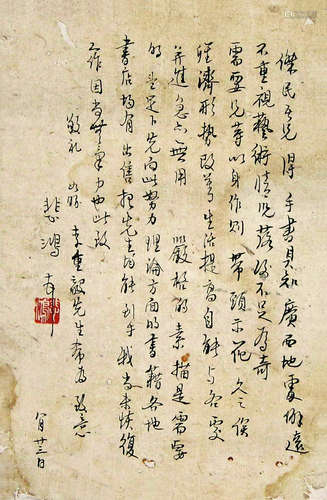 傑民吾兄 得手書具知廣西地處僻遠
不重視藝術情況落後不足為奇
需要兄等以身作則 帶頭示範 久之俟
經濟形勢改善生活提高自能与各處
并進急亦無用 嚴格的素描是需要
的 望足下先向此努力 理論方面的書籍各地
書店均有出售 想先生均能到手 我尚未恢復
工作因尚無氣力也 此致
敬礼 李重毅先生希為致意
悲鴻
八月廿三日